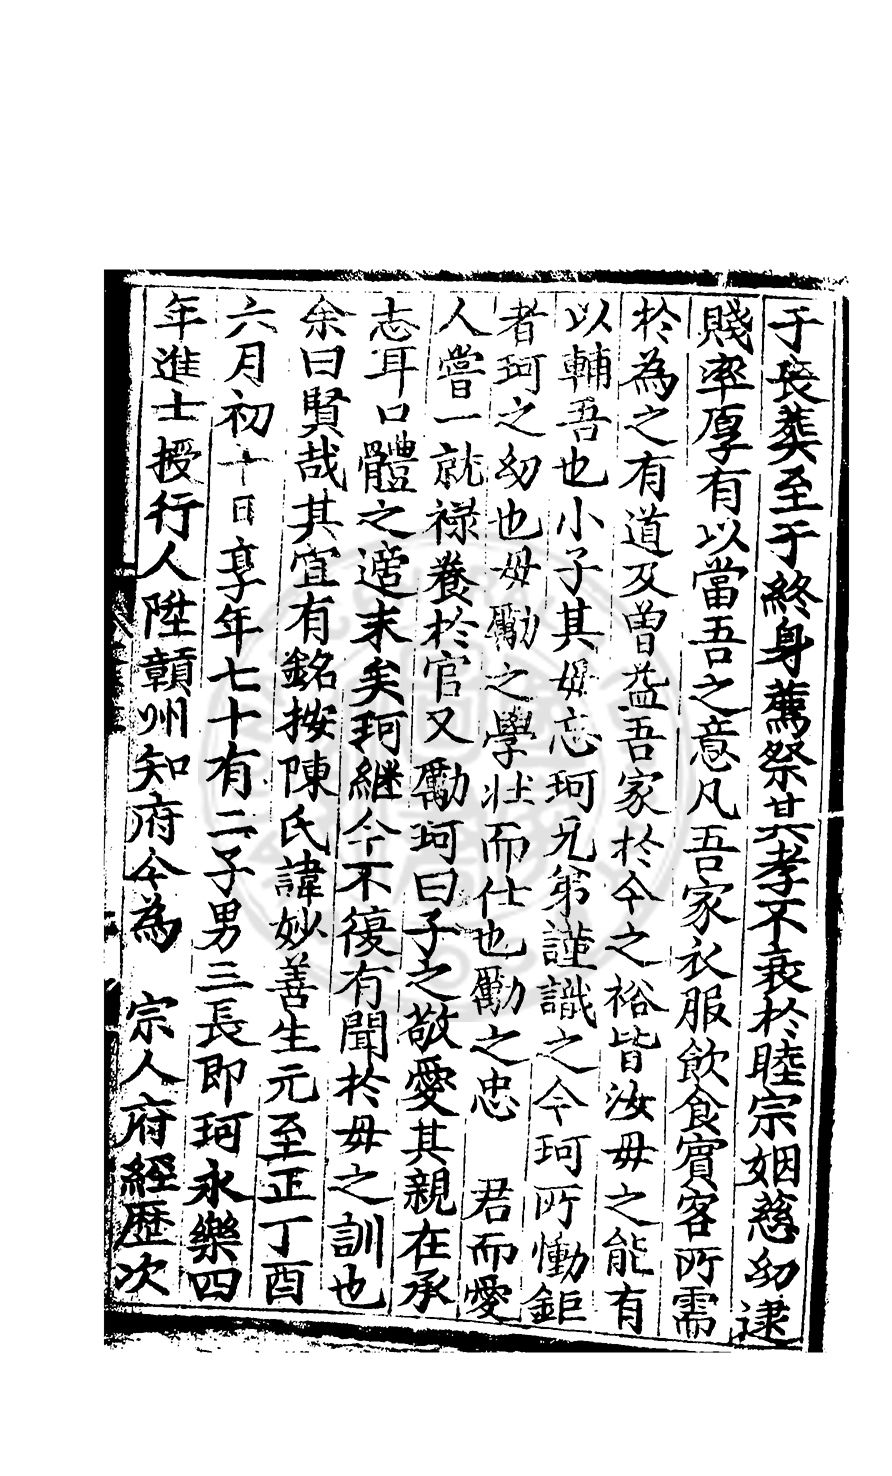 于丧葬至于終身薦祭其孝不衰於睦宗姻慈幼逮
賤率厚有以當吾之意凡吾家衣服飲食賓客所需
於為之有道及曾益吾家於今之裕皆汝毋之能有
以輔吾也小子其毋忘珂兄弟謹識之今珂所慟鉅
者珂之幼也毋勵之學壯而仕也勵之忠　君而愛
人嘗一就禄養於官又勵珂曰子之敬愛其親在承
志耳口體之適末矣珂継今不復有聞於毋之訓也
余曰賢哉其宜有銘按陳氏諱妙善生元至正丁酉
六月初十日享年七十有二子男三長即珂永樂四
年進士授行人陞贛州知府今為　宗人府經歷次